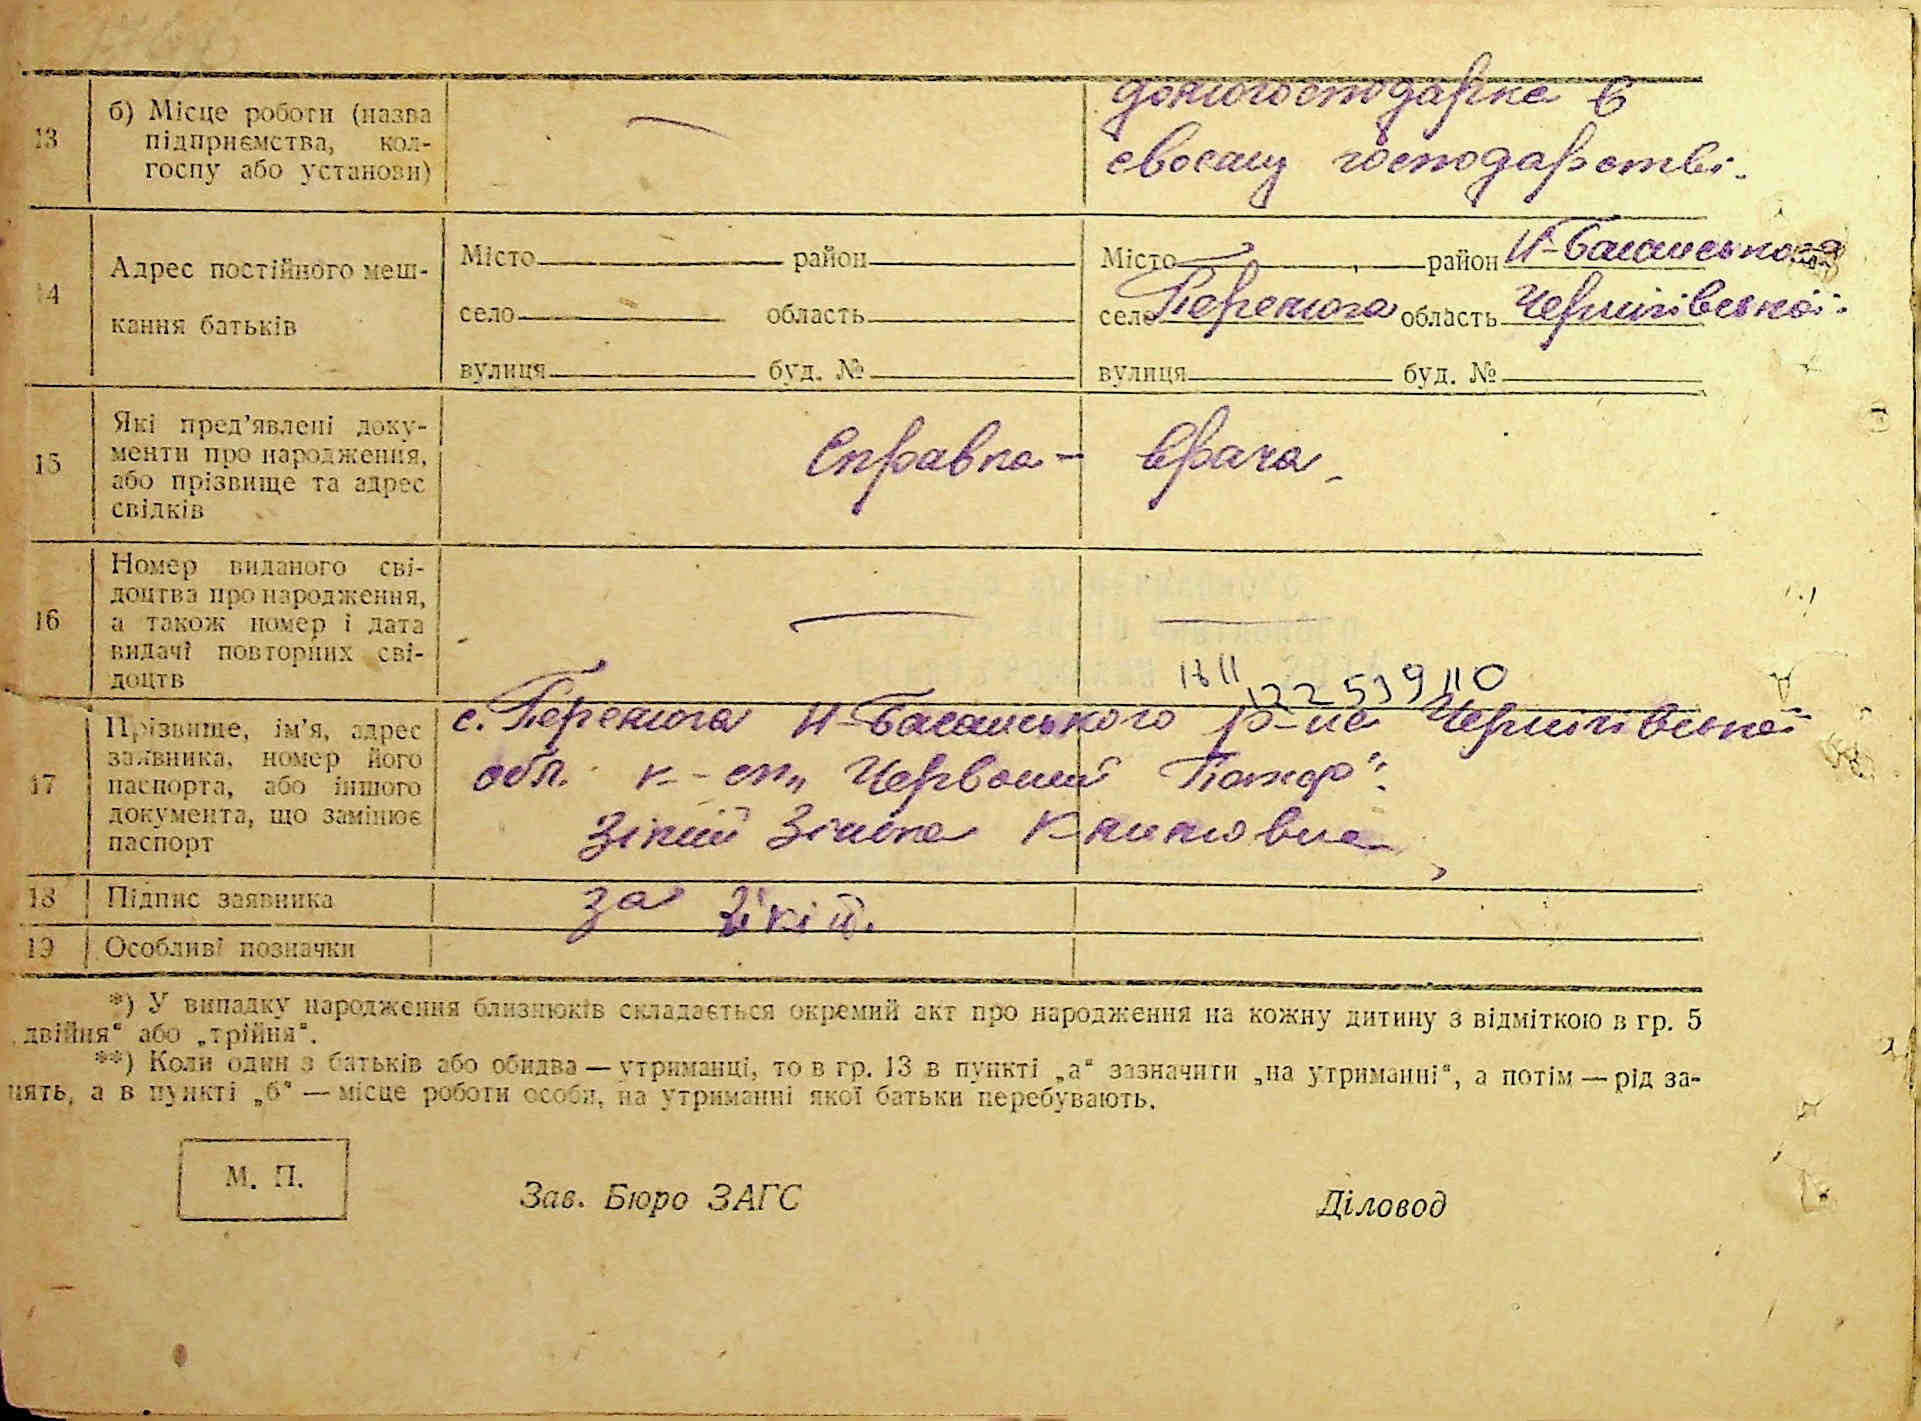 домогосподарка в
13 б) Місце роботи (назва
підприємства, кол-
госпу або установи)
своєму господарстві.
14 Адрес постійного меш-
кання батьків
Місто район Місто район Н-Басанського
село область село Перемога область Чернігівської
вулиця буд. № вулиця буд. №
15 Які пред'явлені доку-
менти про народження,
або прізвище та адрес
свідків
Справка - врача
16 Номер виданого сві-
доцтва про народження,
а також номер і дата
видачі повторних сві-
доцтв
17 Прізвище, ім'я, адрес
заявника, номер його
паспорта, або іншого
документа, що замінює
паспорт
с. Перемога Н-Басанського р-на Чернігівської
обл. к-сп „Червоний
Зікій Зінька
18 Підпис заявника за Зікій.
19 Особливі позначки
*) У випадку народження близнюків складається окремий акт про народження на кожну дитину з відміткою в гр. 5
„двійня“ або „трійня“.
**) Коли один з батьків або обидва — утриманці, то в гр. 13 в пункті „а“ зазначити „на утриманні“, а потім — рід за-
нять, а в пункті „б“ — місце роботи особи, на утриманні якої батьки перебувають.
М. П.
Зав. Бюро ЗАГС Діловод